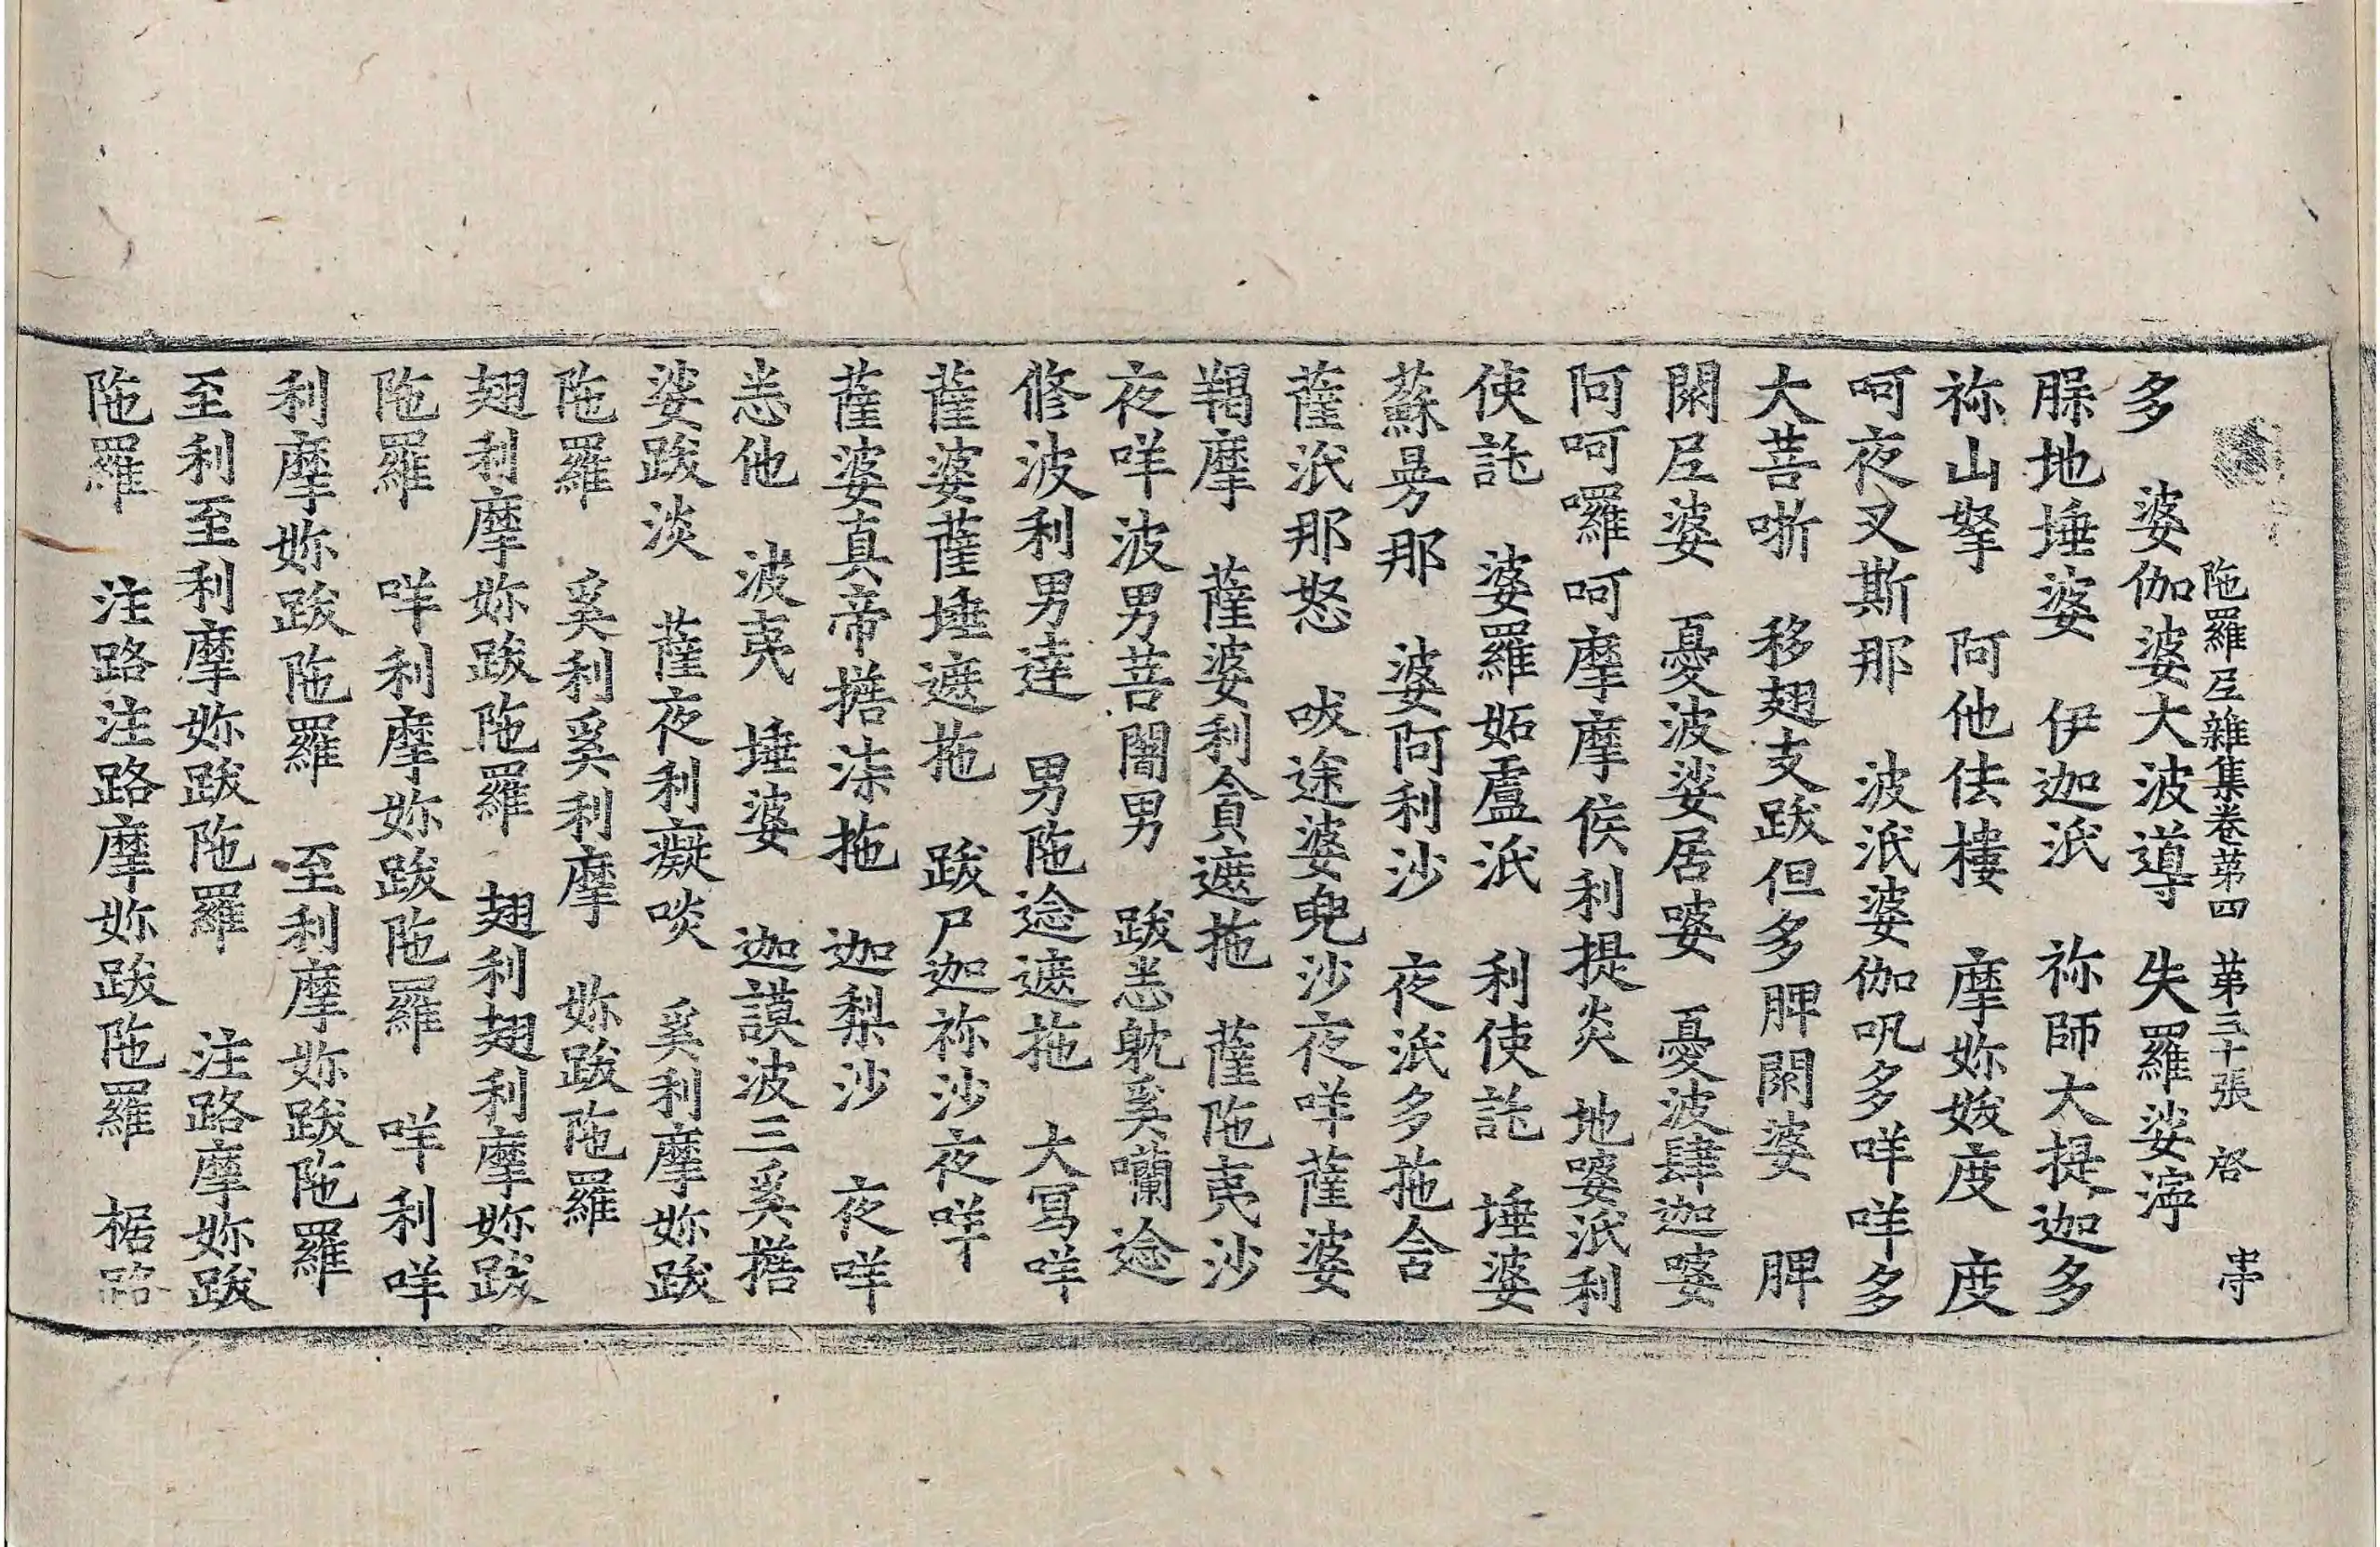 陁羅𡰱雜集卷苐四　苐三十張　啓　𠁧
多　婆伽婆大波導　失羅娑濘
脲地埵婆　伊迦泜　祢師大提迦多
祢山拏　阿他佉樓　摩妳娞度　度
呵夜叉斯那　波泜婆伽呪多咩咩多
大菩哳　移翅支跋但多脾閦婆　脾
閦𡰱婆　憂波娑居婆　憂波肆迦婆
阿呵囉呵摩摩侯利提炎　地婆泜利
使託　婆羅妬盧泜　利使託　埵婆
蘇㫶那　婆阿利沙　夜泜多拖舍
薩泜那怒　哎途婆兜沙夜咩薩婆
羯摩　薩婆利貪遮拖　薩陁夷沙
夜咩波男菩闍男　跋恙躭奚囒逾
修波利男達　男陁逾遮拖　大寫咩
薩婆薩埵遮拖　跋尸迦祢沙夜咩
薩婆真帝搭渿拖　迦梨沙　夜咩
恙他　波夷　埵婆　迦謨波三奚搭
娑跋淡　薩夜利癡啖　奚利摩妳跋
陁羅　奚利奚利摩　妳跋陁羅
翅利摩妳跋陁羅　翅利翅利摩妳跋
陁羅　咩利摩妳跋陁羅　咩利咩
利摩妳跋陁羅　至利摩妳跋陁羅
至利至利摩妳跋陁羅　注路摩妳跋
陁羅　注路注路摩妳跋陁羅　椐路